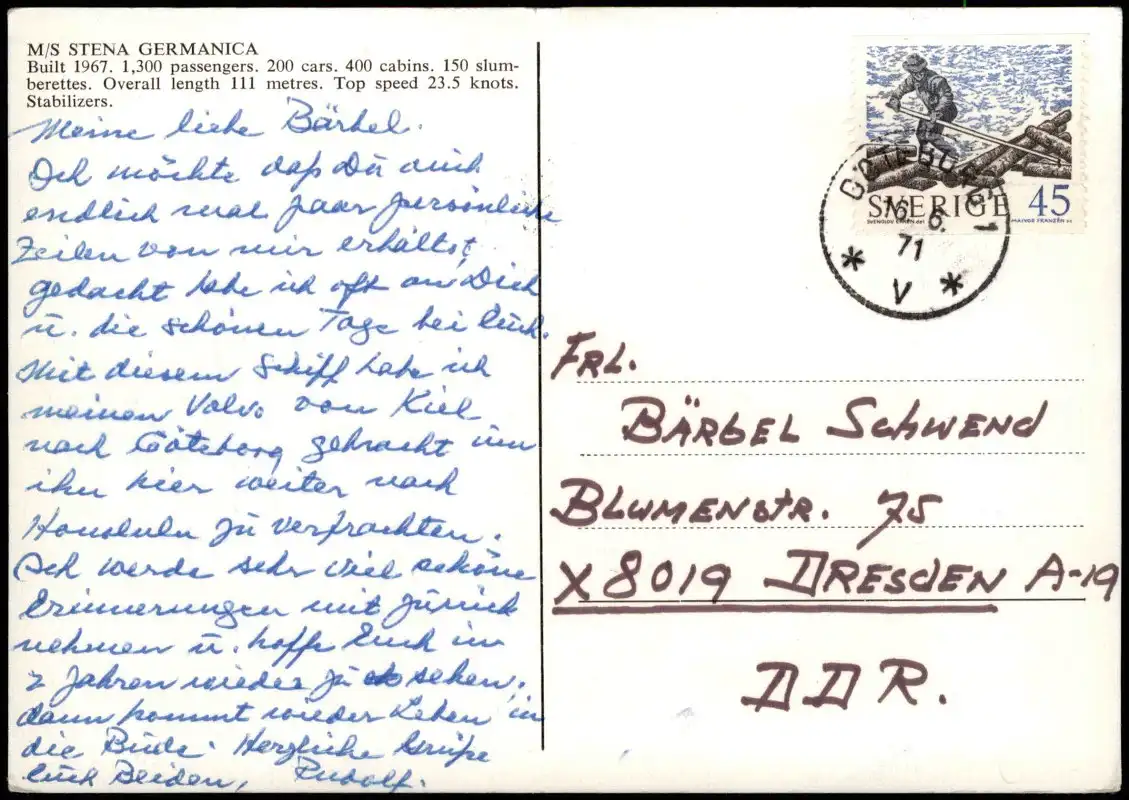 M/S STENA GERMANICA
Built 1967. 1,300 passengers. 200 cars. 400 cabins. 150 slum-
berettes. Overall length 111 metres. Top speed 23.5 knots.
Stabilizers.
Meine liebe Bärbel.
Ich möchte daß Du auch
endlich mal paar persönliche
Zeilen von mir erhältst,
gedacht habe ich oft an Dich
u. die schönen Tage bei Euch.
Mit diesem Schiff habe ich
meinen Volvo von Kiel
nach Göteborg gebracht um
ihn hier weiter nach
Honolulu zu verfrachten.
Ich werde sehr viel schöne
Erinnerungen mit zurück
nehmen u. hoffe Euch in
2 Jahren wieder zu sehen,
dann kommt wieder Leben in
die Bude. Herzliche Grüße
Euch Beiden, Rudolf.
SVERIGE 45
SVENOLOV EHRÉN del.
MAJVOR FRANZÉN sc.
GÖTEBORG 1
16. 6.
71
* V *
FRL.
BÄRBEL SCHWEND
BLUMENSTR. 75
X 8019 DRESDEN A-19
DDR.